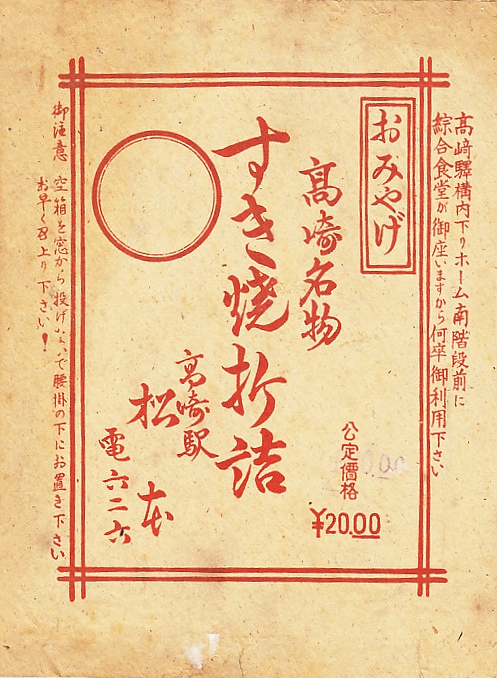 高崎驛構内下りホーム南階段前に
綜合食堂が御座いますから何卒御利用下さい
おみやげ
高崎名物
すき燒折詰
公定價格
¥20.00
高崎駅
松本
電六二六
御注意 空箱を窓から投げないで腰掛の下にお置き下さい
お早く召上り下さい!